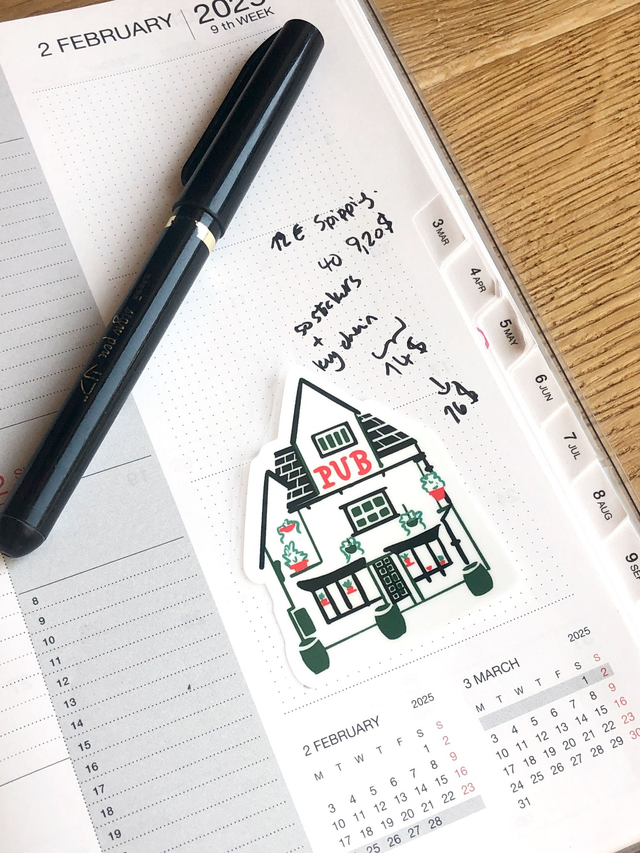 2 FEBRUARY
2025
9 th WEEK
12 € Spipping.
40 9,20$
50 stickers
+
key chain 14$
16$
PUB
3 MAR
4 APR
5 MAY
6 JUN
7 JUL
8 AUG
9 SE
8
9
10
11
12
13
14
15
16
17
18
19
2 FEBRUARY 2025
M T W T F S S
1 2
3 4 5 6 7 8 9
10 11 12 13 14 15 16
17 18 19 20 21 22 23
25 26 27 28
3 MARCH 2025
M T W T F S S
1 2
3 4 5 6 7 8 9
10 11 12 13 14 15 16
17 18 19 20 21 22 23
24 25 26 27 28 29 30
31